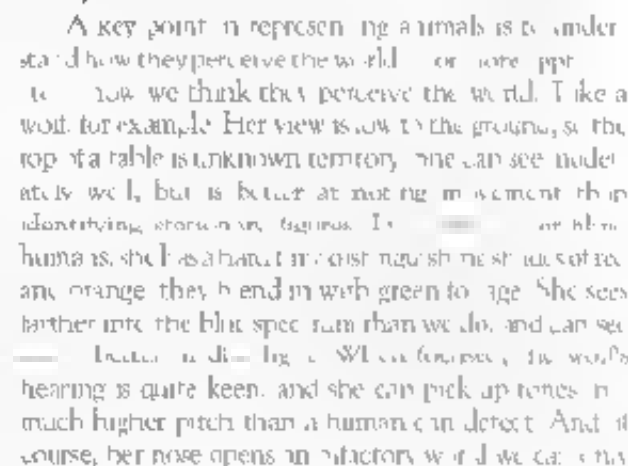 A key point in representing animals is to under
stand how they perceive the world or
how we think they perceive the world. Take a
wolf, for example. Her view is low to the ground, so the
top of a table is unknown territory. She can see moder
ately well, but is better at noting movement than
identifying stationary figures.
humans, she has a hard time distinguishing most hues of red
and orange they blend in with green foliage. She sees
farther into the blue spectrum than we do, and can see
better in dim light. the wolf's
hearing is quite keen, and she can pick up tones in
much higher pitch than a human can detect. And of
course, her nose opens an olfactory world we can